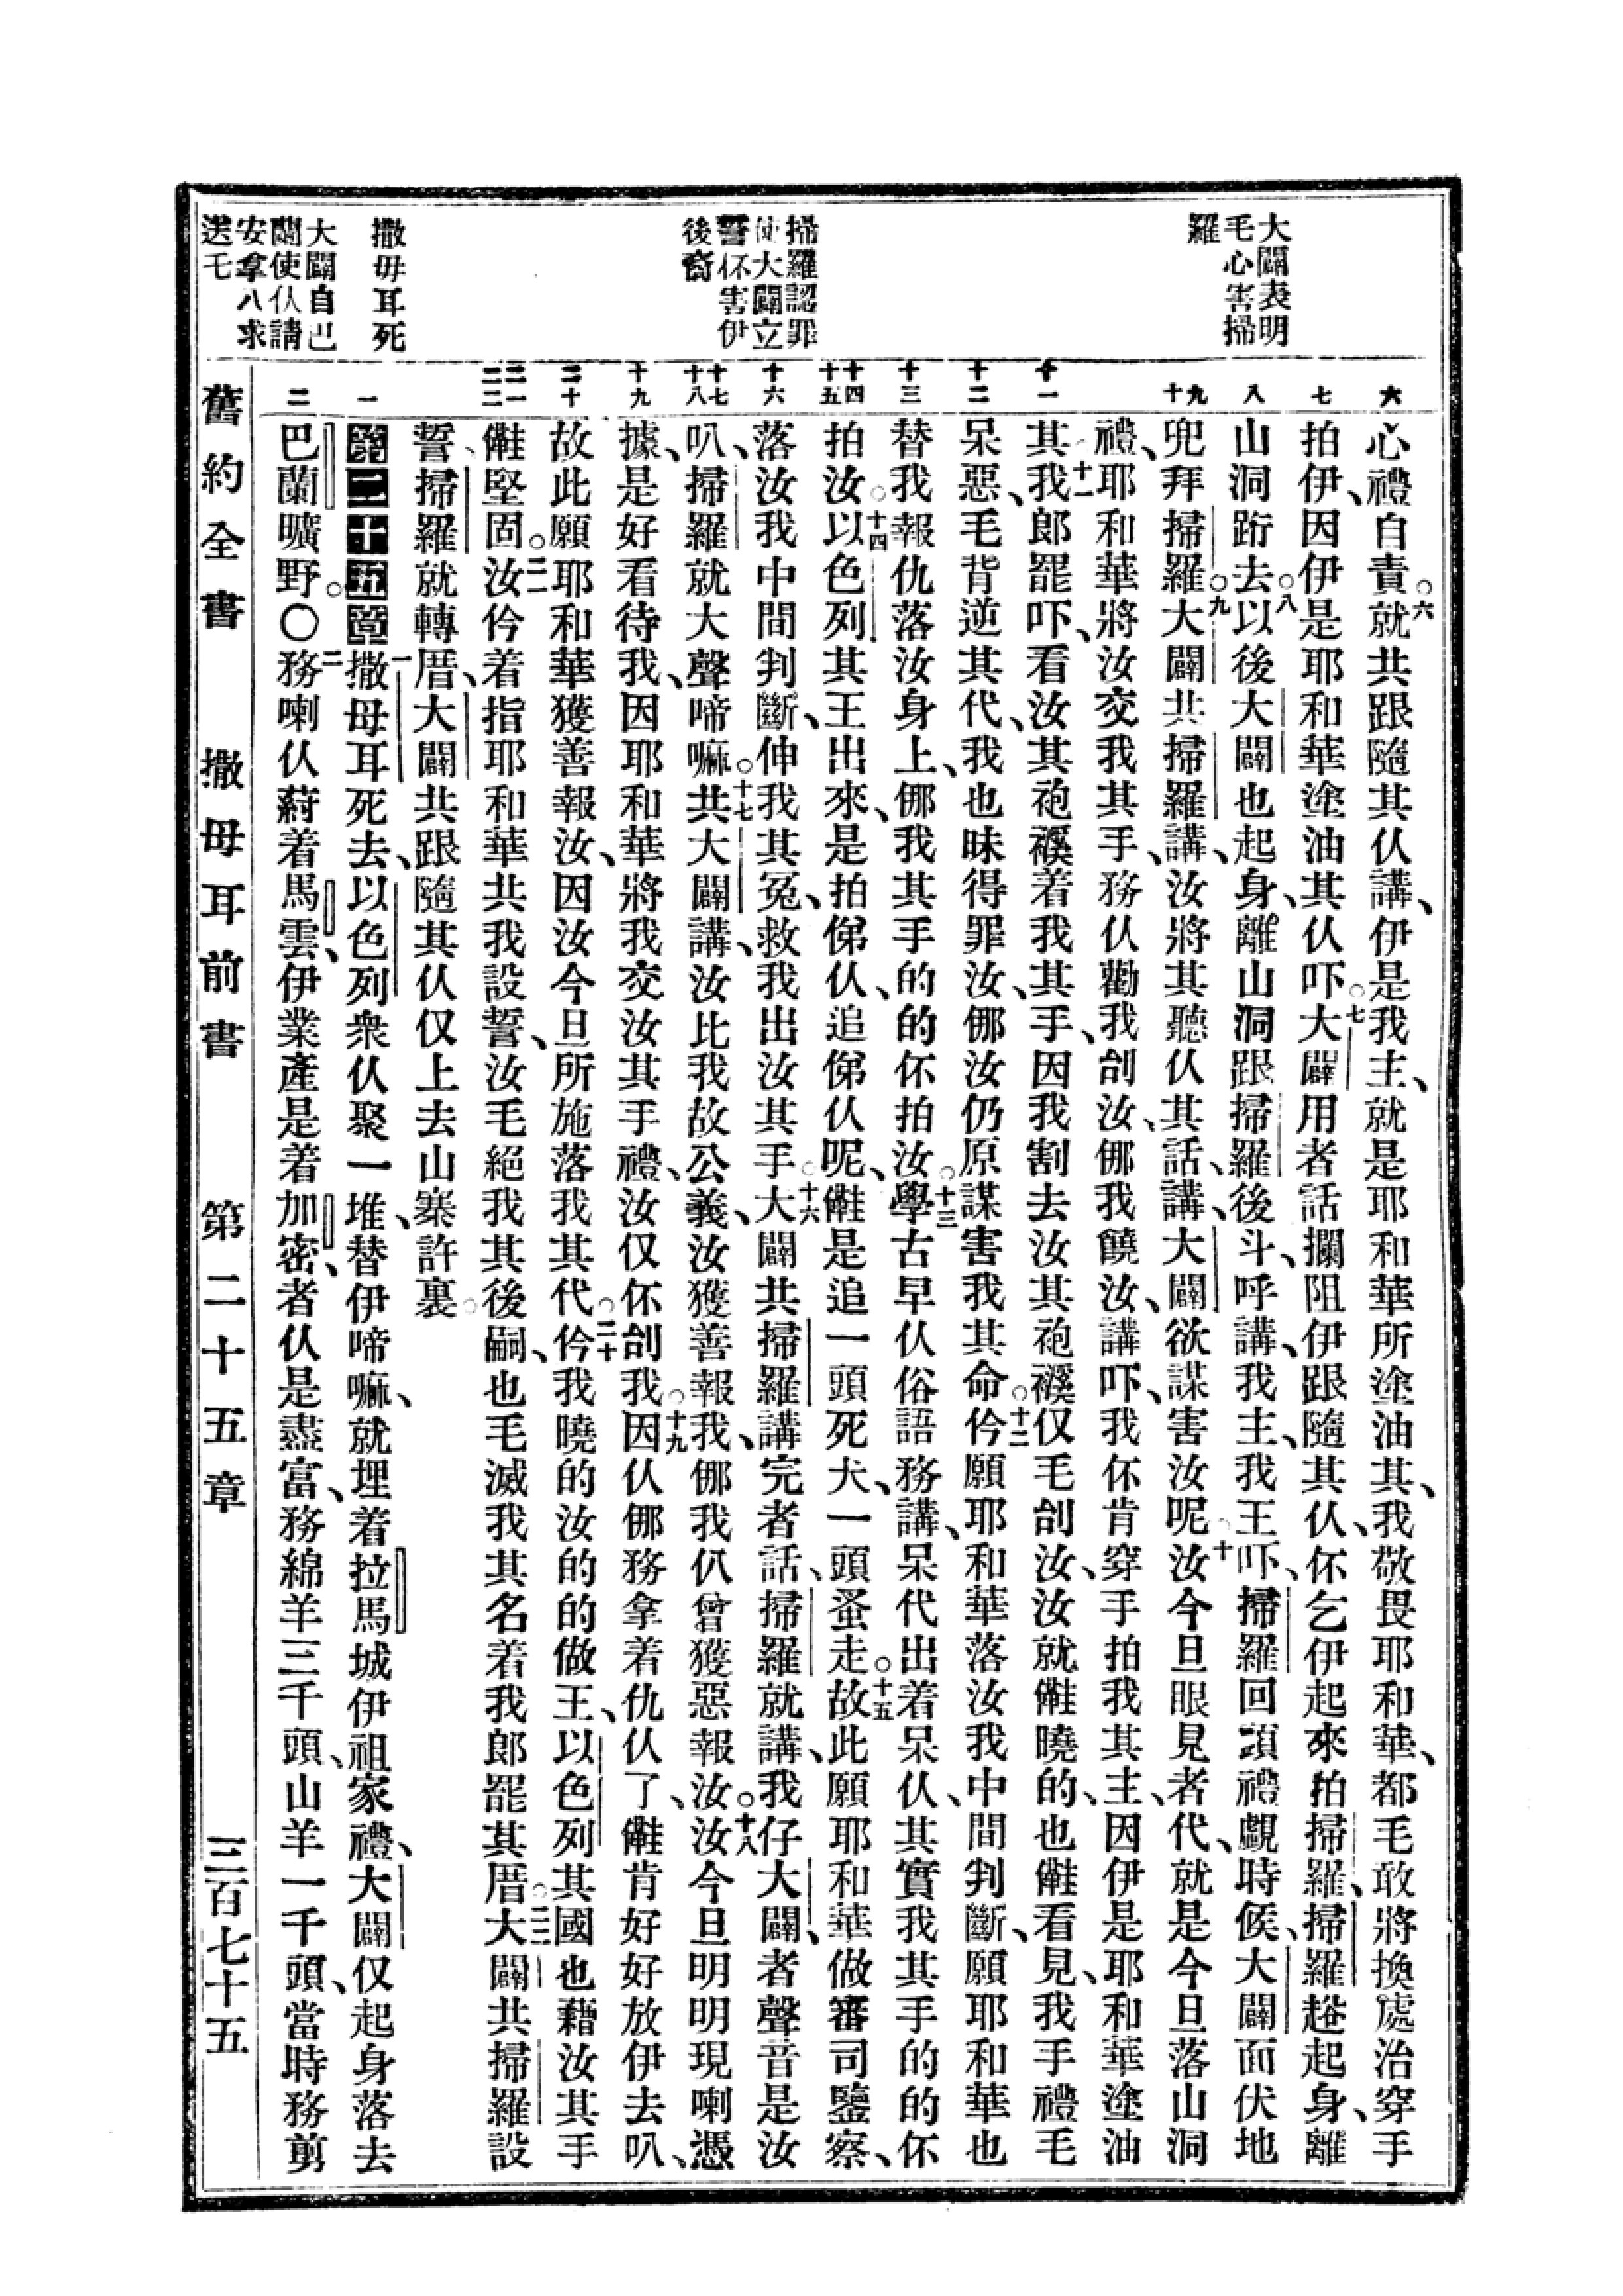 大闢表明
毛心害掃
羅
掃羅認罪
使大闢立
誓伓害伊
後裔
撒毋耳死
大闢自己
闢使仈請
安拿八求
送乇
六
七
八
九 十
十一
十二
十三
十四 十五
十六
十七 十八
十九
二十
二一 二二
一
二
心禮自責。六就共跟隨其仈講、伊是我主、就是耶和華所塗油其、我敬畏耶和華、都毛敢將換處治穿手
拍伊、因伊是耶和華塗油其仈吓。七大闢用者話攔阻伊跟隨其仈、伓乞伊起來拍掃羅、掃羅趒起身、離
山洞跕去。八以後大闢也起身、離山洞跟掃羅後斗、呼講、我主、我王吓、掃羅回頭禮覷時候、大闢面伏地
兜拜掃羅。九大闢共掃羅講、汝將其聽仈其話、講、大闢欲謀害汝呢。十汝今旦眼見者代、就是今旦落山洞
禮、耶和華將汝交我其手、務仈勸我刣汝、倻我饒汝、講吓、我伓肯穿手拍我其主、因伊是耶和華塗油
其。十一我郎罷吓、看汝其袍襖着我其手、因我割去汝其袍襖仅毛刣汝、汝就𠆧曉的、也𠆧看見、我手禮毛
呆惡、毛背逆其代、我也昧得罪汝、倻汝仍原謀害我其命。十二仱願耶和華落汝我中間判斷、願耶和華也
替我報仇落汝身上、倻我其手的的伓拍汝。十三學古早仈俗語務講、呆代出着呆仈、其實我其手的的伓
拍汝。十四以色列其王出來、是拍俤仈、追俤仈呢、𠆧是追一頭死犬、一頭蚤走。十五故此願耶和華做審司鑒察、
落汝我中間判斷、伸我其冤、救我出汝其手。十六大闢共掃羅講完者話、掃羅就講、我仔大闢、者聲音是汝
叭、掃羅就大聲啼嘛。十七共大闢講、汝比我故公義、汝獲善報我、倻我仈曾獲惡報汝。十八汝今旦明明現喇憑
據、是好看待我、因耶和華將我交汝其手禮、汝仅伓刣我。十九因仈倻務拿着仇仈了、𠆧肯好好放伊去叭、
故此願耶和華獲善報汝、因汝今旦所施落我其代。二十仱我曉的汝的的做王、以色列其國也藉汝其手
𠆧堅固。二一汝仱着指耶和華共我設誓、汝毛絕我其後嗣、也毛滅我其名着我郎罷其厝。二二大闢共掃羅設
誓、掃羅就轉厝、大闢共跟隨其仈仅上去山寨許裏。
第二十五章 一撒母耳死去、以色列衆仈聚一堆、替伊啼嘛、就埋着拉馬城伊祖家禮、大闢仅起身落去
巴蘭曠野。〇二務喇仈蔚着馬雲、伊業產是着加密、者仈是盡富、務綿羊三千頭、山羊一千頭、當時務剪
舊約全書 撒母耳前書 第二十五章 三百七十五